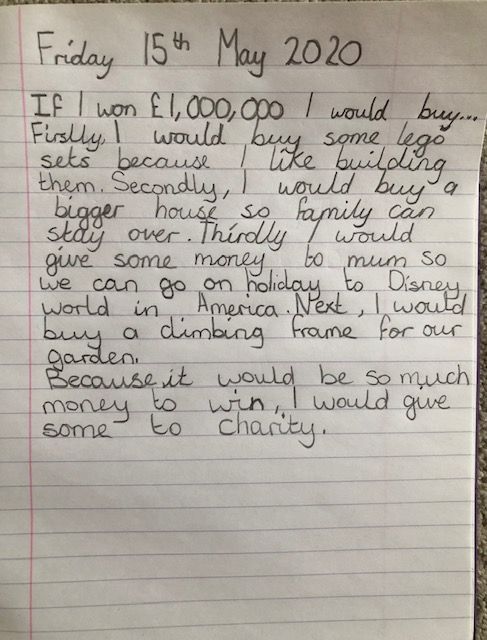 Friday 15th May 2020
If I won £1,000,000 I would buy...
Firslly, I would buy some lego
sets because I like building
them. Secondly, I would buy a
bigger house so family can
stay over. Thirdly I would
give some money to mum so
we can go on holiday to Disney
world in America. Next, I would
buy a climbing frame for our
garden.
Because it would be so much
money to win, I would give
some to charity.